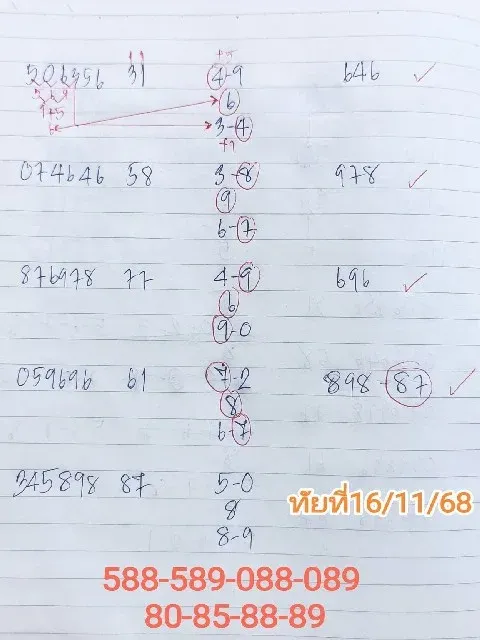 +5
506356 31 4-9 646
5 6 9
6
1+5
6 3-4
+1
074646 58 3-8 978
9
6-7
876978 77 4-9 696
6
9-0
059696 61 7-2 898-87
8
6-7
345898 87 5-0
8
8-9
ทัยที่16/11/68
588-589-088-089
80-85-88-89